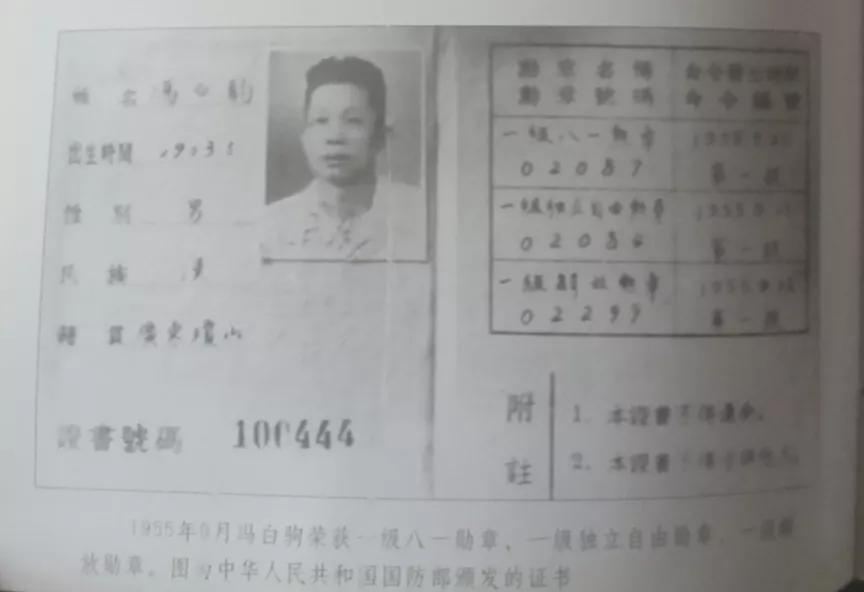 姓名 馮白駒
出生時間 1903.
性別 男
民族 漢
籍貫 廣東瓊山
證書號碼 100444
勳章名稱 命令發出時間
勳章號碼 命令編號
一級八一勳章 1955.9.
02087 第一號
一級獨立自由勳章 1955.9.
0208 第一號
一級解放勳章 1955.9.
02299 第一號
附註
1. 本證書不得遺失。
2. 本證書不得
1955年9月冯白驹荣获一级八一勋章、一级独立自由勋章、一级解
放勋章。图为中华人民共和国国防部颁发的证书